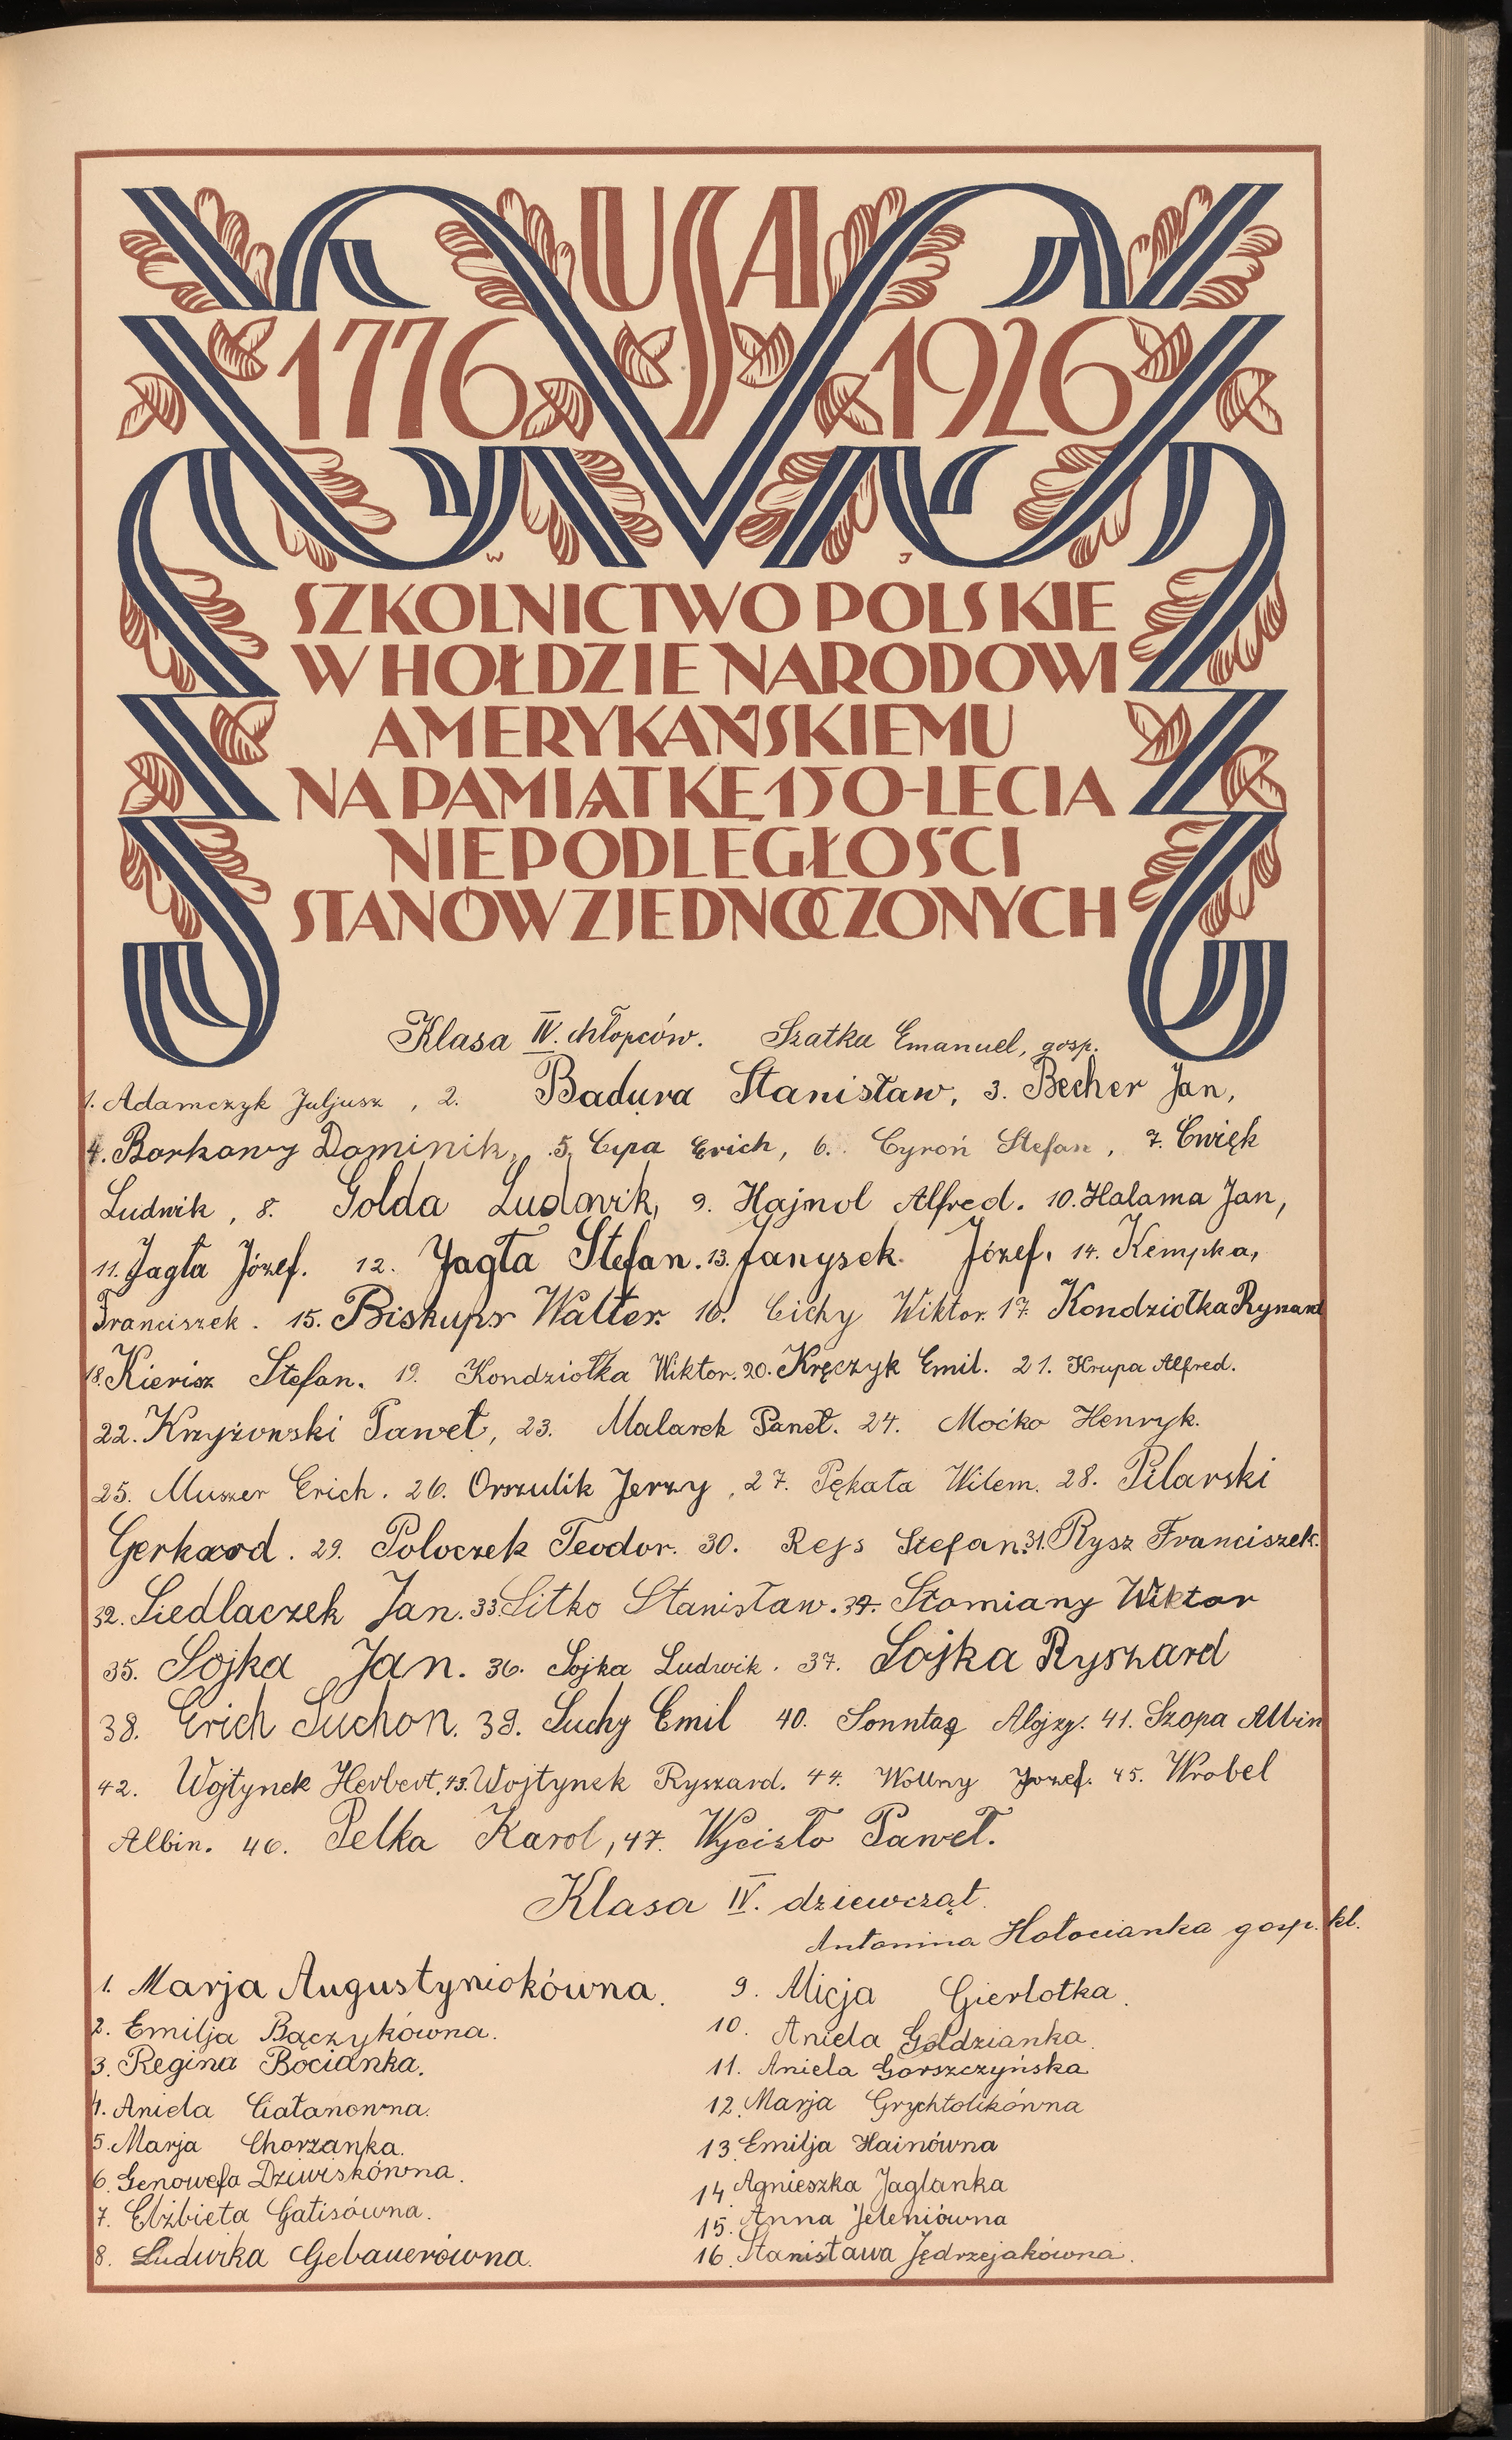 USA
1776 1926
W J
SZKOLNICTWO POLSKIE
W HOŁDZIE NARODOWI
AMERYKAŃSKIEMU
NA PAMIĄTKĘ 150-LECIA
NIEPODLEGŁOŚCI
STANÓW ZJEDNOCZONYCH
Klasa IV. chłopców. Szatka Emanuel, gosp.
1. Adamczyk Juljusz, 2. Badura Stanisław, 3. Becher Jan,
4. Borkowy Dominik, 5. Cipa Erich, 6. Cyroń Stefan, 7. Ćwięk
Ludwik, 8. Golda Ludowik, 9. Hajnol Alfred. 10. Halama Jan,
11. Jagła Józef. 12. Jagła Stefan. 13. Janysek Józef. 14. Kempka,
Franciszek. 15. Biskups Walter. 16. Cichy Wiktor. 17. Kondziołka Rynard
18. Kierisz Stefan. 19. Kondziołka Wiktor. 20. Kręczyk Emil. 21. Krupa Alfred.
22. Krzyżowski Paweł, 23. Malarek Paweł. 24. Moćko Henryk.
25. Muszer Erich. 26. Orszulik Jerzy, 27. Pękała Wilem. 28. Pilarski
Gerhard. 29. Poloczek Teodor. 30. Rejs Stefan. 31. Rysz Franciszek.
32. Siedlaczek Jan. 33. Sitko Stanisław. 34. Słomiany Wiktor
35. Sojka Jan. 36. Sojka Ludwik. 37. Sojka Ryszard
38. Erich Suchon. 39. Suchy Emil 40. Sonntag Alojzy. 41. Szopa Albin
42. Wojtynek Herbert. 43. Wojtynek Ryszard. 44. Wollny Jozef. 45. Wrobel
Albin. 46. Pelka Karol, 47. Wycisło Paweł.
Klasa IV. dziewcząt.
Antonina Hołocianka gosp. kl.
1. Marja Augustyniokówna. 9. Alicja Gierlotka.
2. Emilja Bączykówna. 10. Aniela Goldzianka.
3. Regina Bocianka. 11. Aniela Gorszczyńska
4. Aniela Ciałanowna. 12. Marja Grychtolikówna
5. Marja Chorzanka. 13. Emilja Hainówna
6. Genowefa Dziwiskówna. 14. Agnieszka Jaglanka
7. Elżbieta Gatisówna. 15. Anna Jeleniówna
8. Ludwika Gebauerówna. 16. Stanisława Jędrzejakówna.